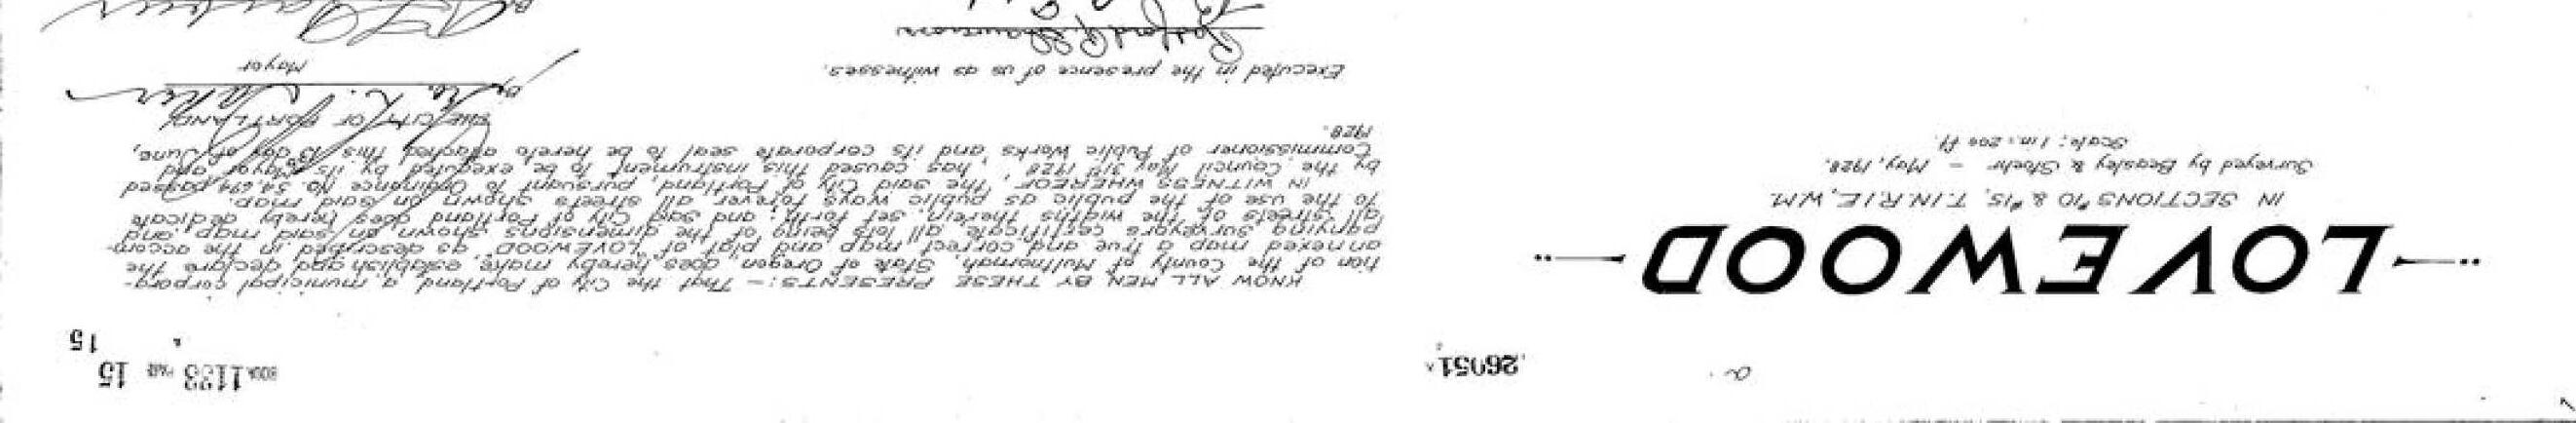 26051
BOOK 1133 PAGE 15
15
LOVEWOOD
IN SECTIONS #10 & #15, T.1N.R.1E., W.M.
Surveyed by Beasley & Stoehr — May, 1928.
Scale: 1 in. = 200 ft.
KNOW ALL MEN BY THESE PRESENTS:— That the City of Portland, a municipal corpora-
tion of the County of Multnomah, State of Oregon, does hereby make, establish and declare the
annexed map a true and correct map and plat of "LOVEWOOD", as described in the accom-
panying surveyors certificate, all lots being of the dimensions shown on said map, and
all streets of the widths therein set forth; and said City of Portland does hereby dedicate
to the use of the public as public ways forever all streets shown on said map.
IN WITNESS WHEREOF, the said City of Portland, pursuant to Ordinance No. 54,694 passed
by the Council May 31st 1928, has caused this instrument to be executed by its Mayor and
Commissioner of Public Works and its corporate seal to be hereto attached this 13th day of June,
1928.
THE CITY OF PORTLAND
By Geo. L. Baker
Mayor
Executed in the presence of us as witnesses.
By